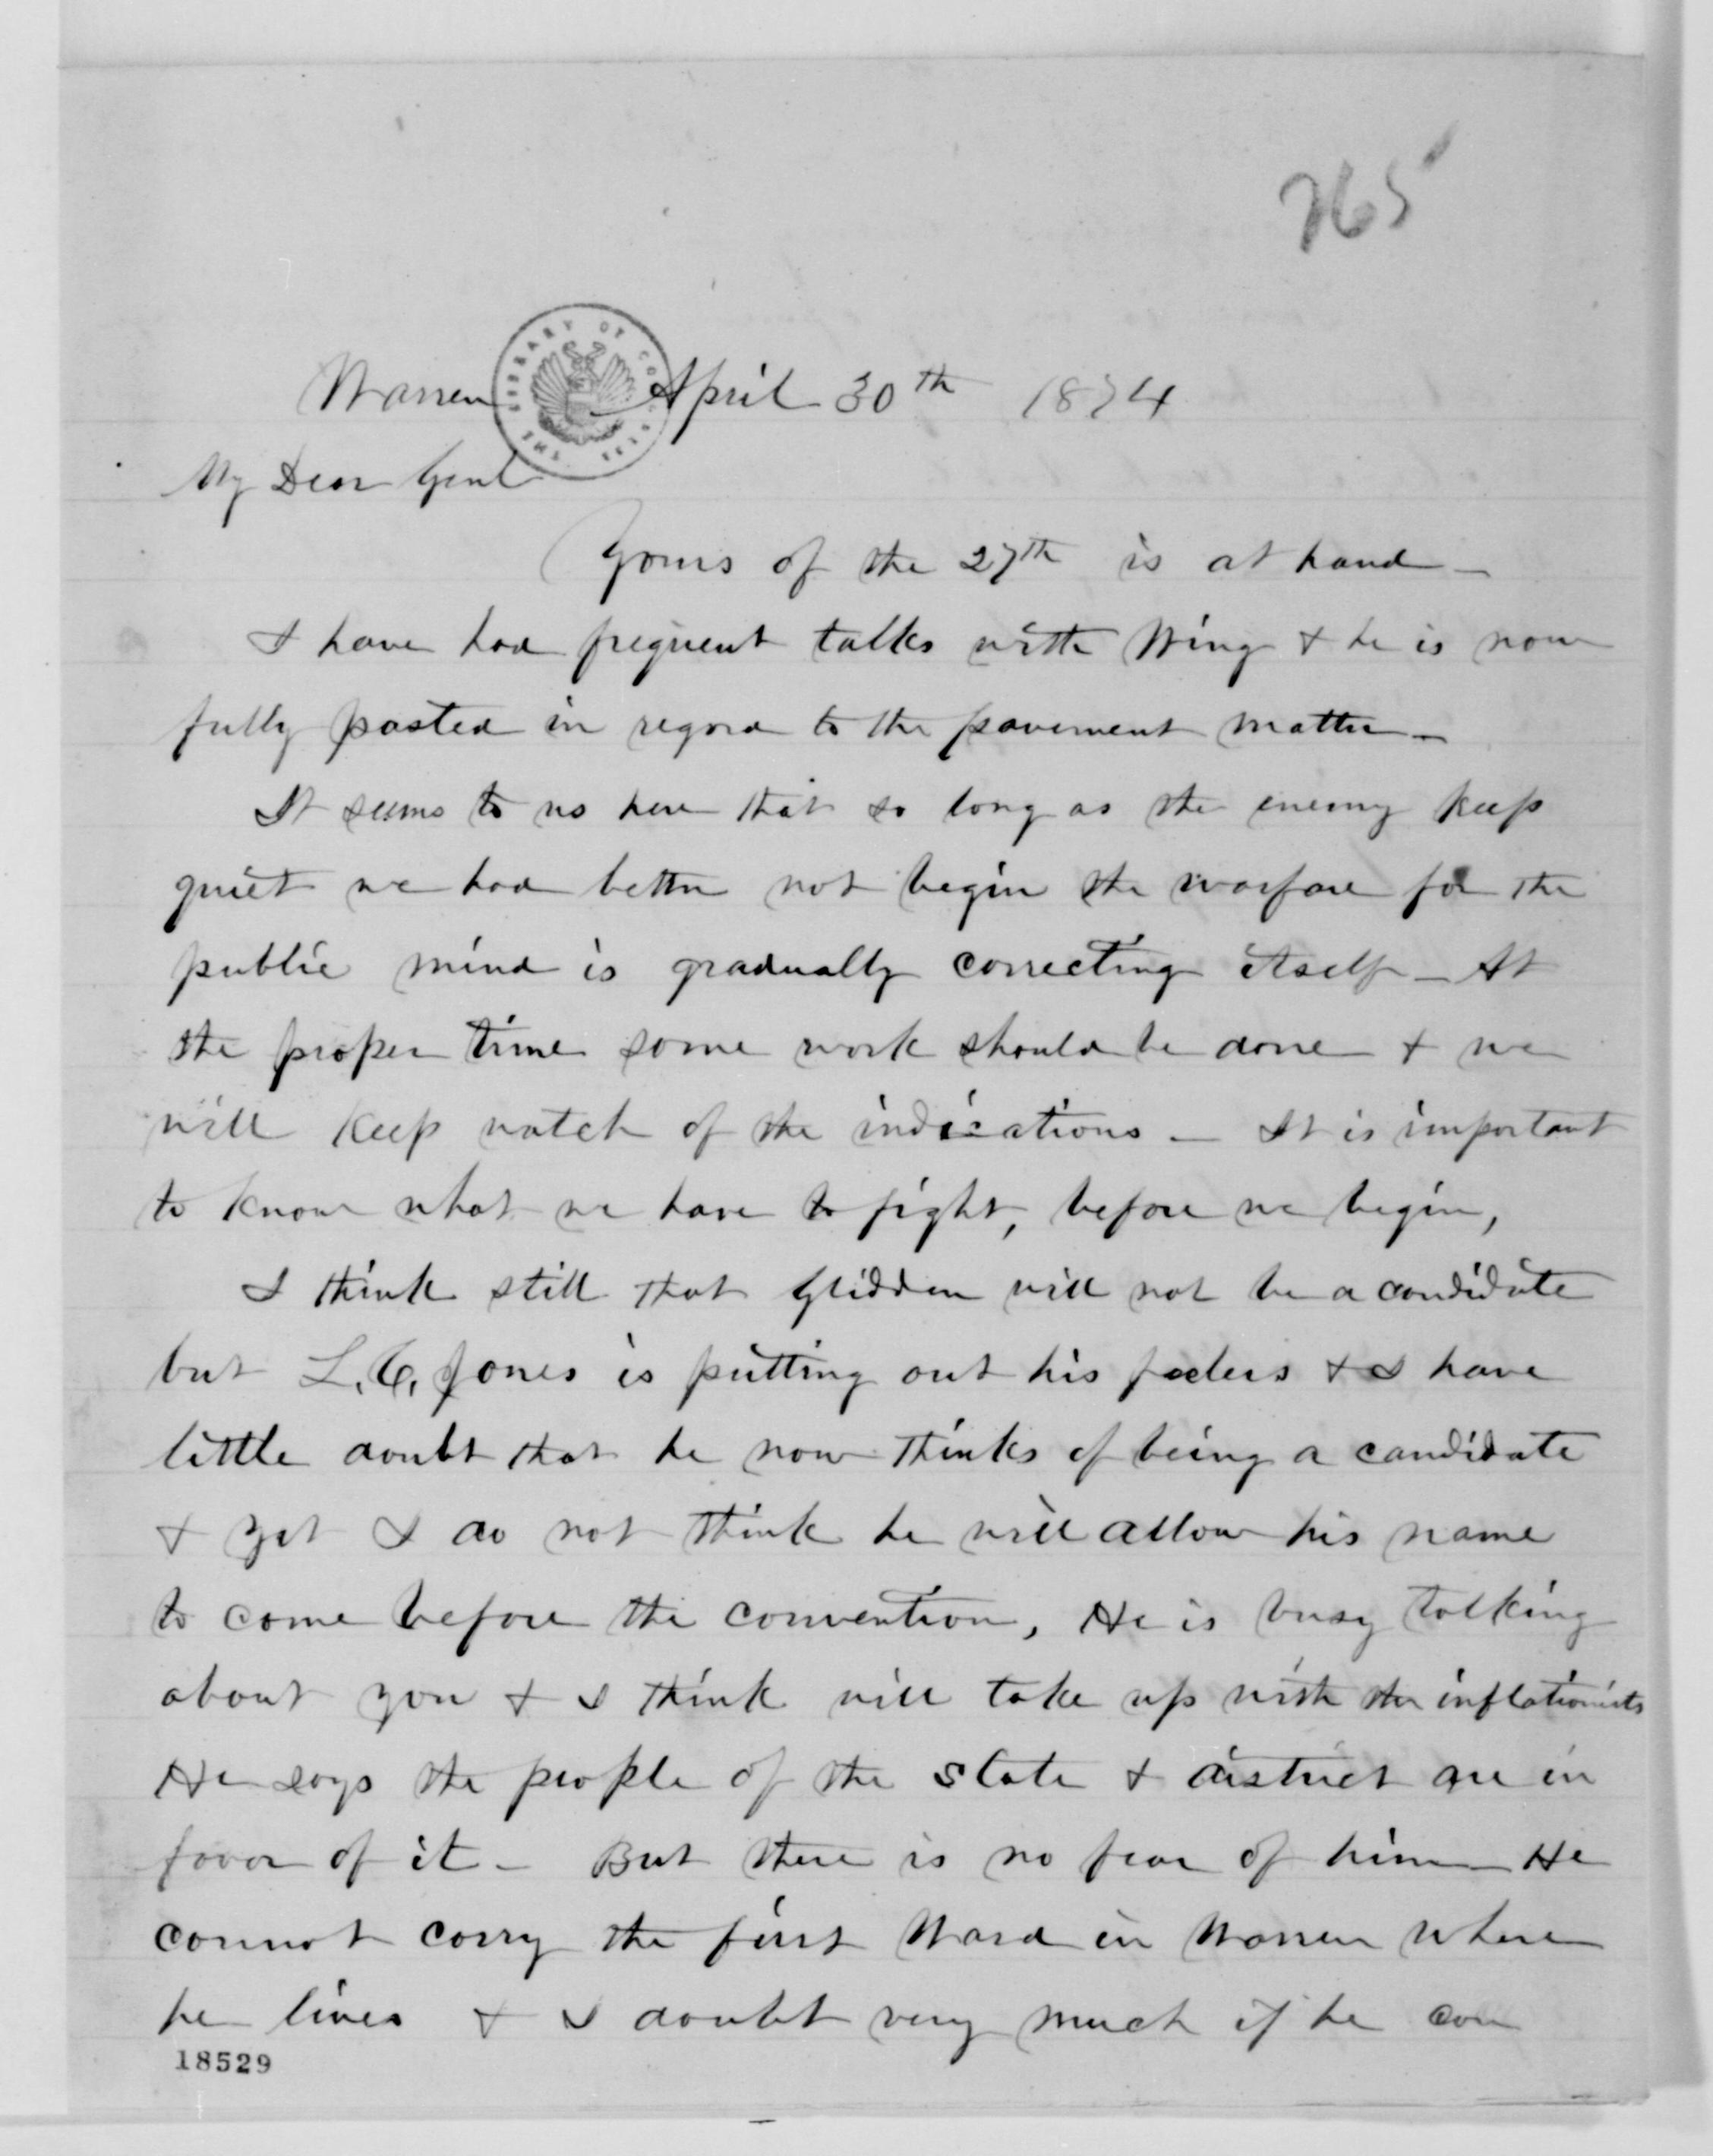 265
Warren April 30th 1874
THE LIBRARY OF CONGRESS
My Dear Genl
Yours of the 27th is at hand —
I have had frequent talks with Wing & he is now
fully posted in regard to the pavement matter —
It seems to us here that so long as the enemy keep
quiet we had better not begin the warfare for the
public mind is gradually correcting itself — At
the proper time some work should be done & we
will keep watch of the indications — It is important
to know what we have to fight, before we begin,
I think still that Glidden will not be a candidate
but L. C. Jones is putting out his feelers & I have
little doubt that he now thinks of being a candidate
& yet I do not think he will allow his name
to come before the convention, He is busy talking
about you & I think will take up with the inflationists
He says the people of the state & district are in
favor of it — But there is no fear of him — He
cannot carry the first Ward in Warren where
he lives & I doubt very much if he can
18529